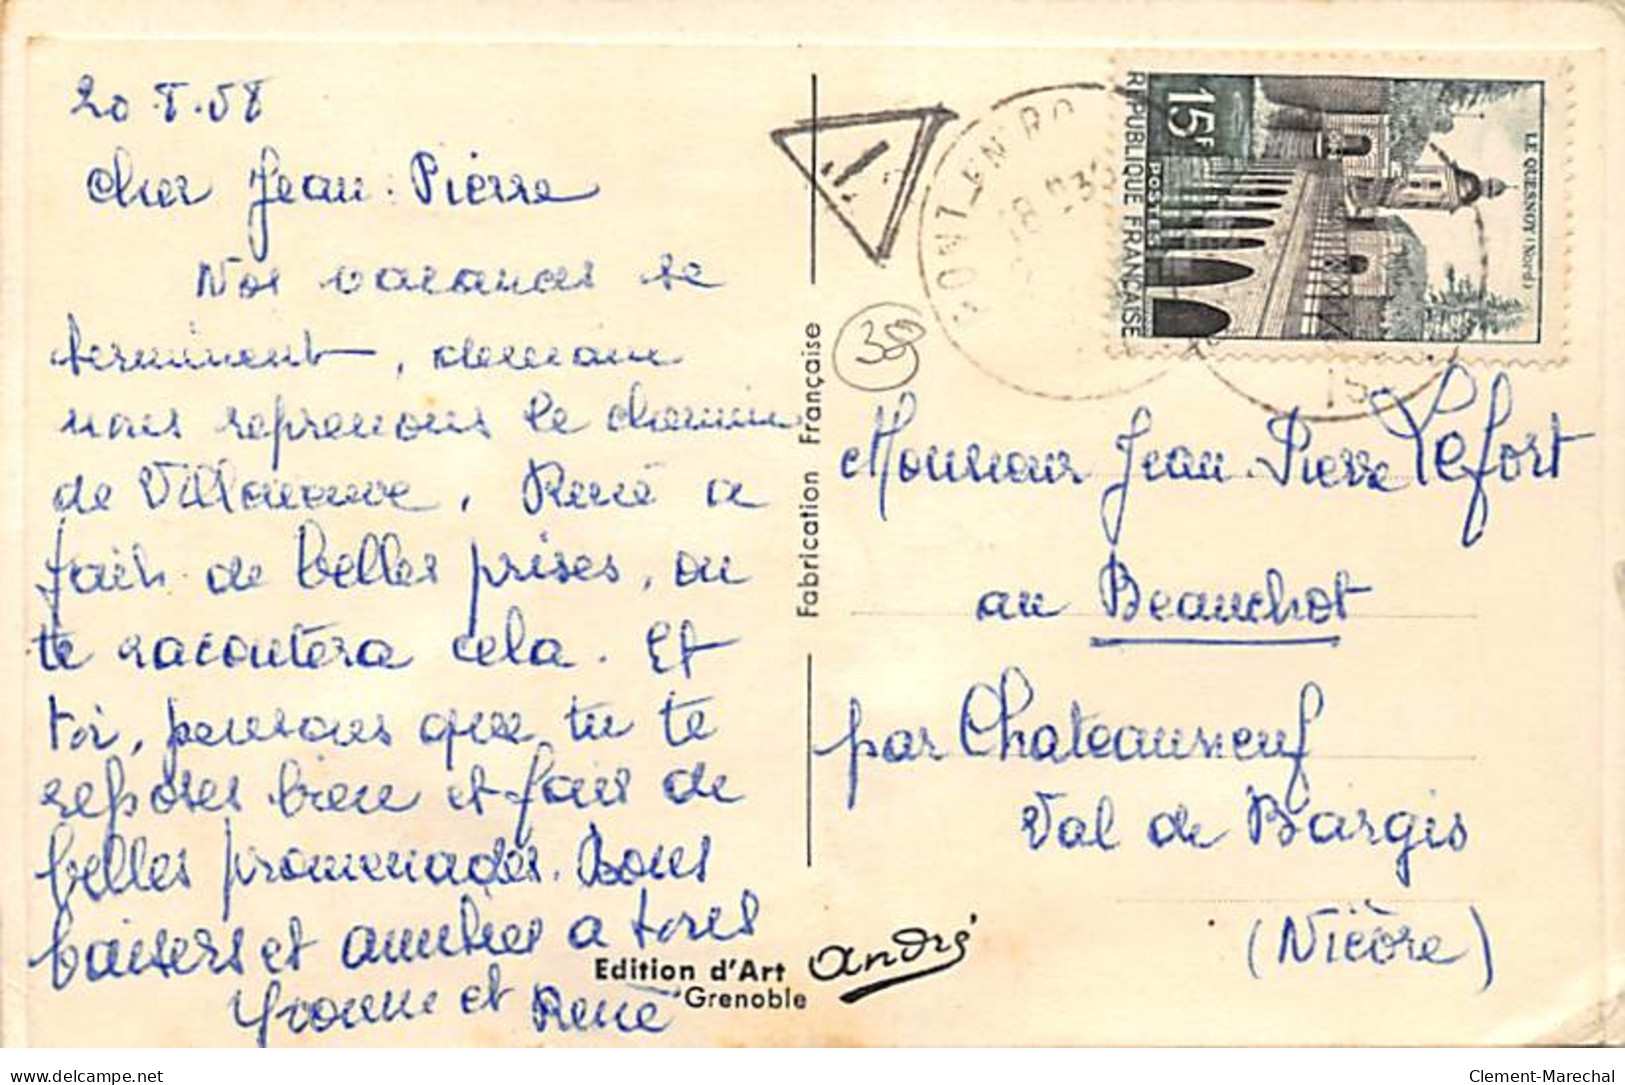 20.8.58
Cher Jean-Pierre
Nos vacances se
terminent, demain
nous reprenons le chemin
de Villeneuve, René a
fait de belles prises, on
te racontera cela. Et
toi, pensons que tu te
reposes bien et fais de
belles promenades. Bons
baisers et amitiés a tous
Yvonne et René
Edition d'Art andré
Grenoble
Fabrication Française
T
39
PONT_EN_RO
18
LE QUESNOY (Nord)
15F
POSTES
REPUBLIQUE FRANÇAISE
Monsieur Jean-Pierre Lefort
au Beauchot
par Chateauneuf
Val de Bargis
(Nièvre)
Clement-Marechal